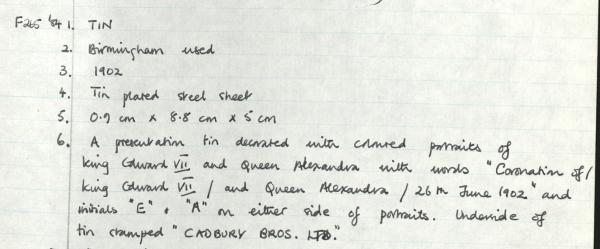 F265 '84 1. TIN
2. Birmingham used
3. 1902
4. Tin plated steel sheet
5. 0.9 cm x 8.8 cm x 5 cm
6. A presentation tin decorated with coloured portraits of
King Edward VII and Queen Alexandra with words "Coronation of /
King Edward VII / and Queen Alexandra / 26th June 1902" and
initials "E" + "A" on either side of portraits. Underside of
tin stamped "CADBURY BROS. LTD."